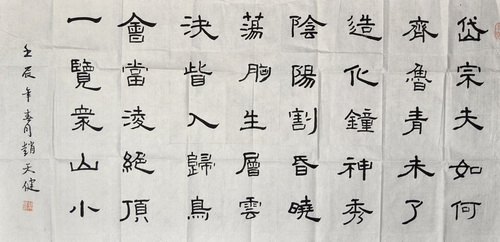 岱宗夫如何
齊魯青未了
造化鐘神秀
陰陽割昏曉
蕩胸生層雲
決眥入歸鳥
會當淩絕頂
一覽衆山小
壬辰年春月趙天健